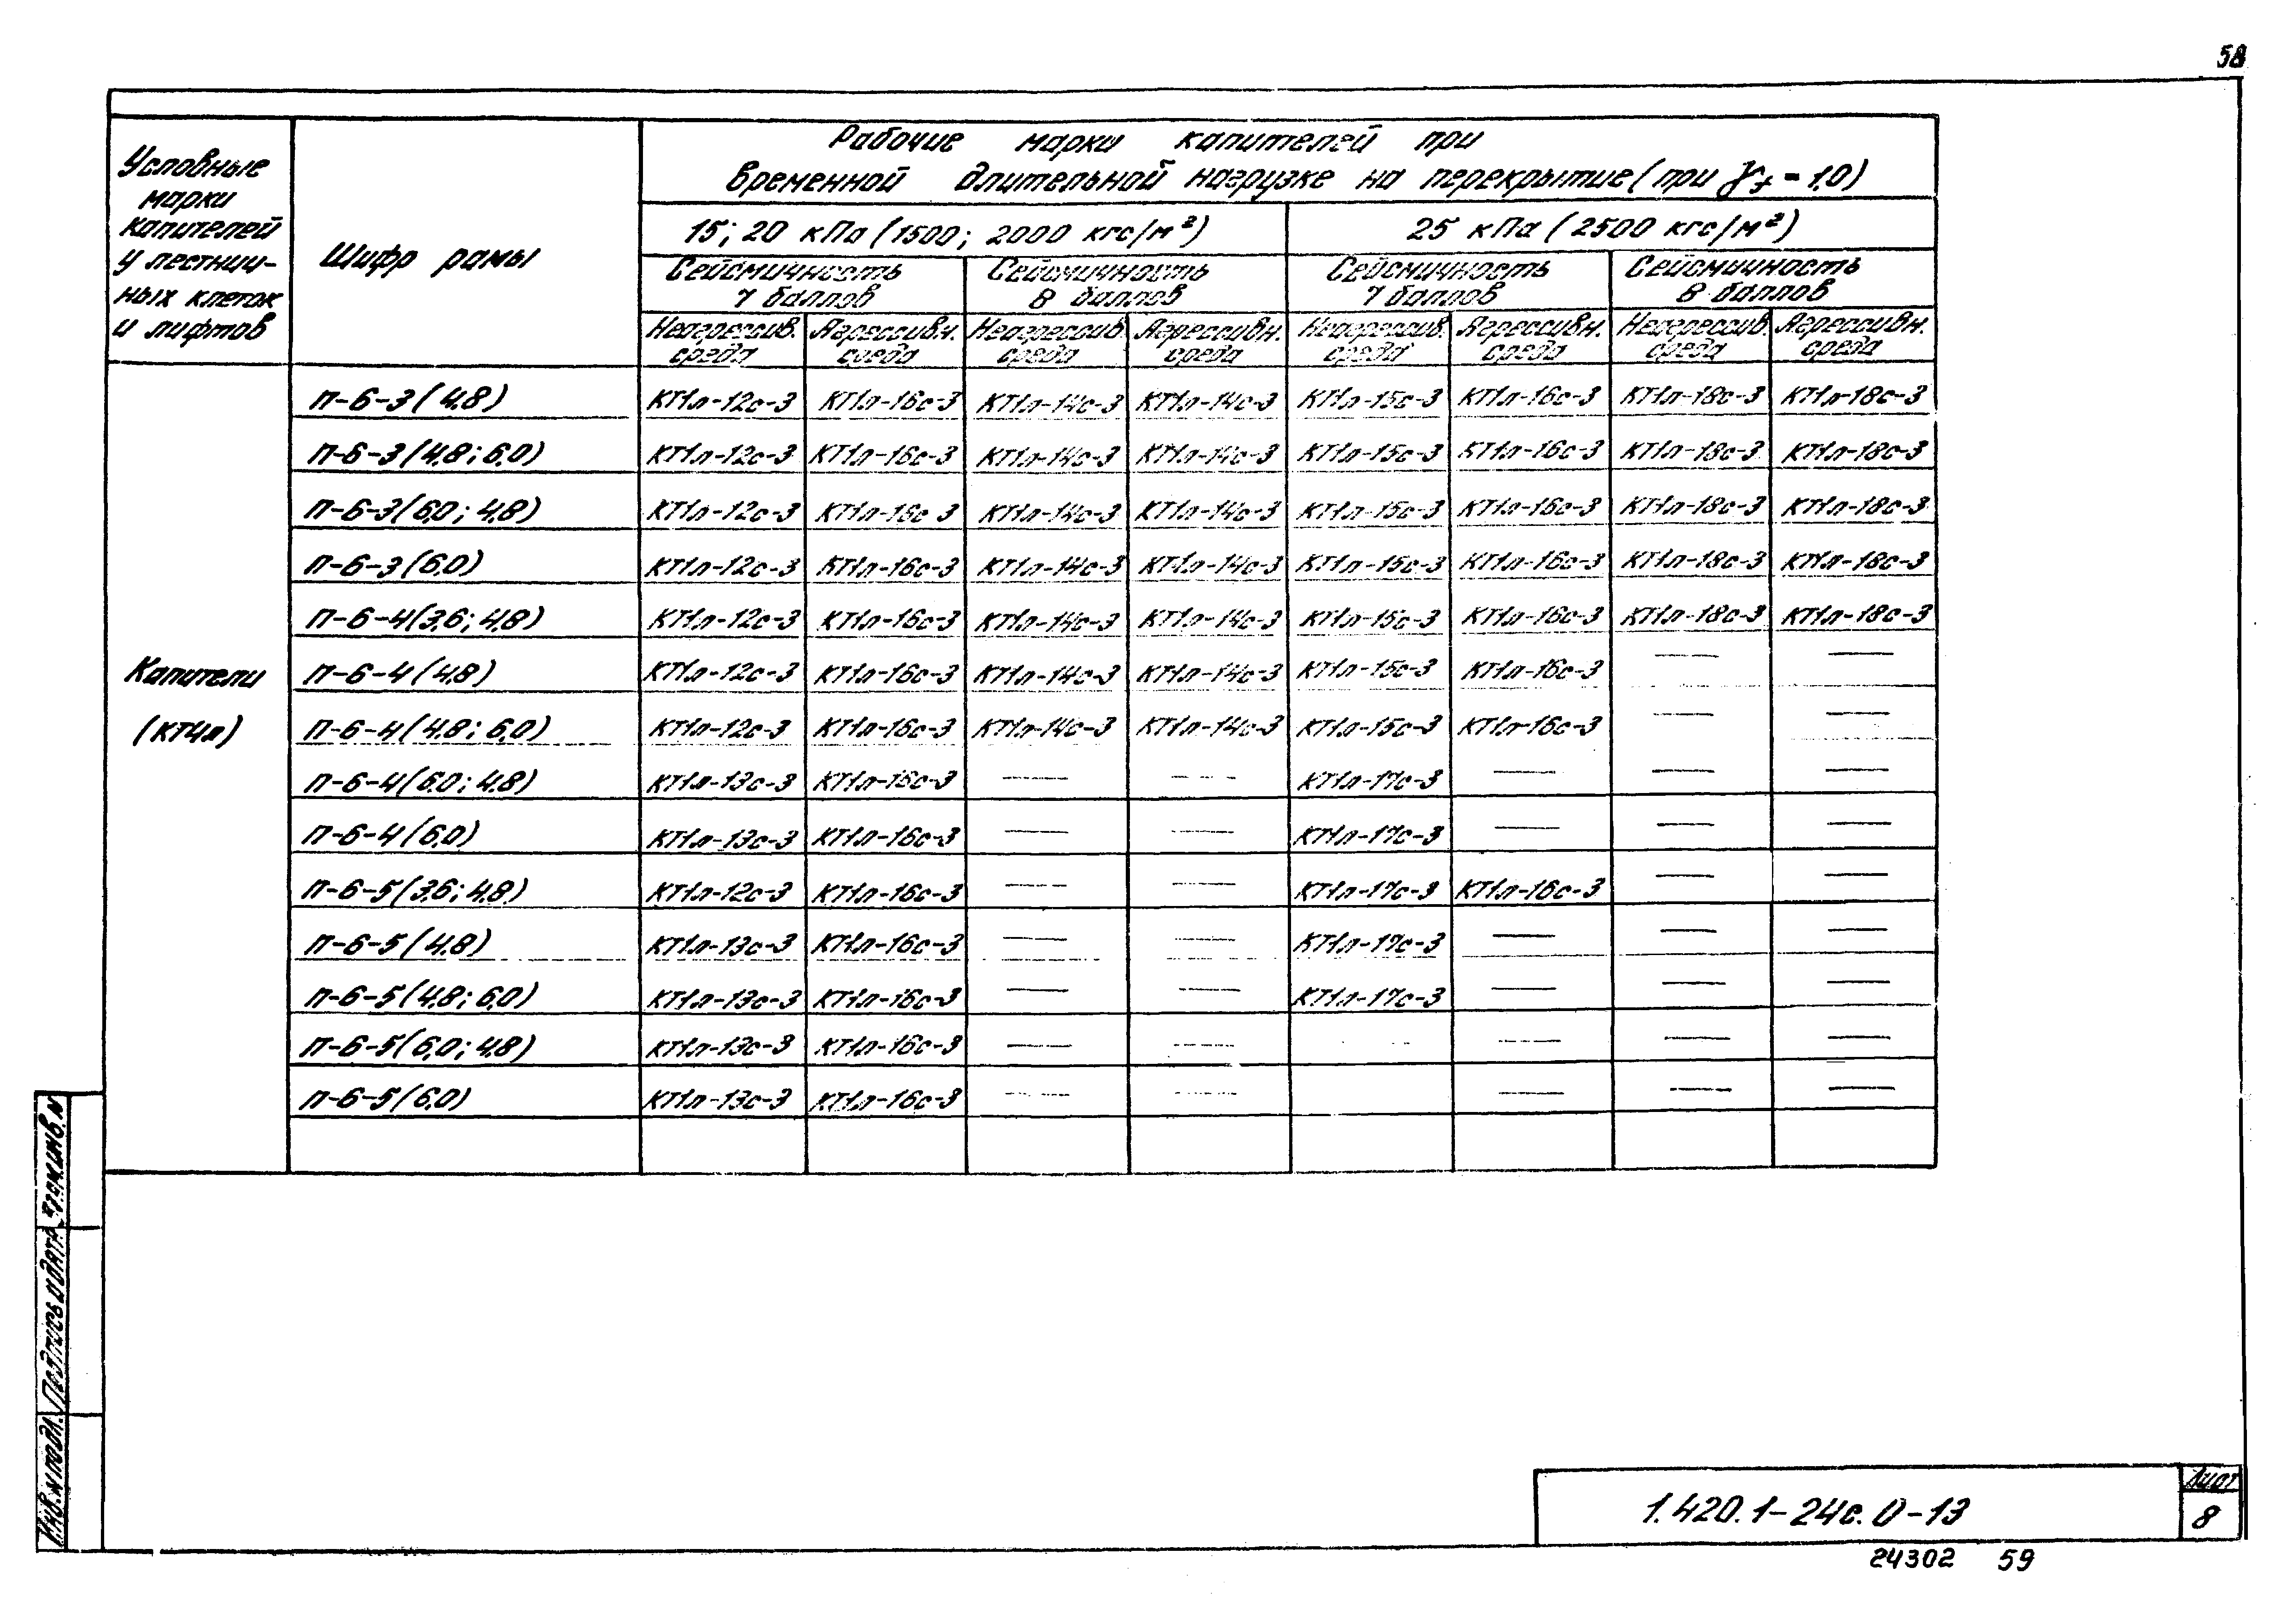 58
Условные марки капителей у лестнич-ных клеток и лифтов
Шифр рамы
Рабочие марки капителей при
временной длительной нагрузке на перекрытие (при γf = 1,0)
15; 20 кПа (1500; 2000 кгс/м²) 25 кПа (2500 кгс/м²)
Сейсмичность 7 баллов Сейсмичность 8 баллов Сейсмичность 7 баллов Сейсмичность 8 баллов
Неагрессив. среда Агрессивн. среда Неагрессив. среда Агрессивн. среда Неагрессив. среда Агрессивн. среда Неагрессив. среда Агрессивн. среда
П-6-3(4,8) КТ1л-12с-3 КТ1л-16с-3 КТ1л-14с-3 КТ1л-14с-3 КТ1л-15с-3 КТ1л-16с-3 КТ1л-18с-3 КТ1л-18с-3
П-6-3(4,8; 6,0) КТ1л-12с-3 КТ1л-16с-3 КТ1л-14с-3 КТ1л-14с-3 КТ1л-15с-3 КТ1л-16с-3 КТ1л-18с-3 КТ1л-18с-3
П-6-3(6,0; 4,8) КТ1л-12с-3 КТ1л-16с 3 КТ1л-14с-3 КТ1л-14с-3 КТ1л-15с-3 КТ1л-16с-3 КТ1л-18с-3 КТ1л-18с-3
П-6-3(6,0) КТ1л-12с-3 КТ1л-16с-3 КТ1л-14с-3 КТ1л-14с-3 КТ1л-15с-3 КТ1л-16с-3 КТ1л-18с-3 КТ1л-18с-3
П-6-4(3,6; 4,8) КТ1л-12с-3 КТ1л-16с-3 КТ1л-14с-3 КТ1л-14с-3 КТ1л-15с-3 КТ1л-16с-3 КТ1л-18с-3 КТ1л-18с-3
Капители
П-6-4(4,8) КТ1л-12с-3 КТ1л-16с-3 КТ1л-14с-3 КТ1л-14с-3 КТ1л-15с-3 КТ1л-16с-3 — —
(КТ4л)
П-6-4(4,8; 6,0) КТ1л-12с-3 КТ1л-16с-3 КТ1л-14с-3 КТ1л-14с-3 КТ1л-15с-3 КТ1л-16с-3 — —
П-6-4(6,0; 4,8) КТ1л-13с-3 КТ1л-16с-3 — — КТ1л-17с-3 — — —
П-6-4(6,0) КТ1л-13с-3 КТ1л-16с-3 — — КТ1л-17с-3 — — —
П-6-5(3,6; 4,8) КТ1л-12с-3 КТ1л-16с-3 — — КТ1л-17с-3 КТ1л-16с-3 — —
П-6-5(4,8) КТ1л-13с-3 КТ1л-16с-3 — — КТ1л-17с-3 — — —
П-6-5(4,8; 6,0) КТ1л-13с-3 КТ1л-16с-3 — — КТ1л-17с-3 — — —
П-6-5(6,0; 4,8) КТ1л-13с-3 КТ1л-16с-3 — — — — — —
П-6-5(6,0) КТ1л-13с-3 КТ1л-16с-3 — — — — —
Инв. N подл. Подпись и дата
1.420.1-24с.0-13
Лист
8
24302 59